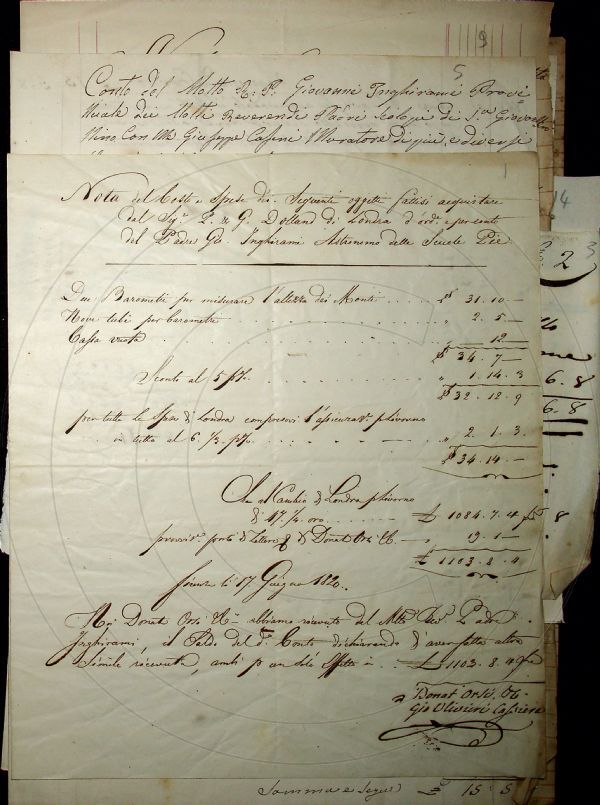 9
5
Conto del Molto R. P. Giovanni Inghirami Provin
ciale dei Molto Reverendi Padri Scolopi di San Giovannino
Con Me Giuseppe Cassini Muratore di più, e diversi
1
Nota del Costo e Spese dei Seguenti oggetti fattisi acquistare
dal Sigr. P. & G. Dolland di Londra d'ord. e per conto
del Padre Gio. Inghirami Astronomo delle Scuole Pie
Due Barometri per misurare l'altezza dei Monti £ 31.10.—
Nove tubi per barometri „ 2.5.—
Cassa vuota „ 12
£ 34.7—
Sconto al 5 p% „ 1.14.3
£ 32.12.9
per tutte le Spese di Londra compresovi l'assicurae. p Livorno
in tutto al 6 1/3 p% „ 2.1.3
£ 34.14.—
Che al Cambio di Londra p Livorno
di 47 1/4 oro £ 1084.7.4
provvis. porti di lettere di Donat Orsi & C. 19.1—
£ 1103.8.4
Firenze li 17 Giugno 1820.
Noi Donat Orsi & C. abbiamo ricevuto dal Molto Revd. Padre
Inghirami, il Saldo del d. Conto dichiarando d'aver fatta altra
Simile ricevuta, ambi p un solo effetto in £ 1103.8.4
Donat Orsi & C.
Gio Ulivieri Cassiere
14
2
3
6.8
6.8
8
Somma e Segue £ 15.5